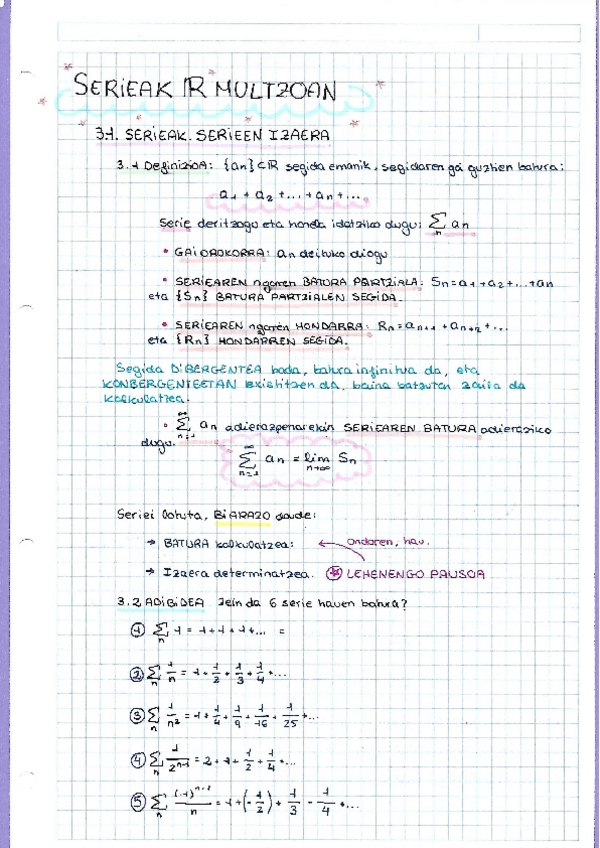 SERIEAK IR MULTZOAN
3.1. SERIEAK. SERIEEN IZAERA
3.1 Definizioa: {an} ⊂ IR segida emanik, segidaren gai guztien batura:
a1 + a2 + ... + an + ...
Serie deritzogu eta honela idatziko dugu: ∑n an
• GAI OROKORRA: an deituko diogu
• SERIEAREN ngaren BATURA PARTZIALA: Sn = a1 + a2 + ... + an
eta {Sn} BATURA PARTZIALEN SEGIDA.
• SERIEAREN ngaren HONDARRA: Rn = an+1 + an+2 + ...
eta {Rn} HONDARREN SEGIDA.
Segida DIBERGENTEA bada, batura infinitua da, eta
KONBERGENTEETAN existitzen da, baina batzutan zaila da
kalkulatzea.
• ∑n=1^∞ an adierazpenarekin SERIEAREN BATURA adieraziko
dugu.
∑n=1^∞ an = lim n→∞ Sn
Seriei lotuta, BI ARAZO daude:
→ BATURA kalkulatzea: ← ondoren, hau.
→ Izaera determinatzea. * LEHENENGO PAUSOA
3.2 ADIBIDEA Zein da 6 serie hauen batura?
① ∑n 1 = 1 + 1 + 1 + 1 + ... =
② ∑n 1/n = 1 + 1/2 + 1/3 + 1/4 + ...
③ ∑n 1/n² = 1 + 1/4 + 1/9 + 1/16 + 1/25 + ...
④ ∑n 1/2^(n-1) = 2 + 1 + 1/2 + 1/4 + ...
⑤ ∑n (-1)^(n-1)/n = 1 + (-1/2) + 1/3 - 1/4 + ...